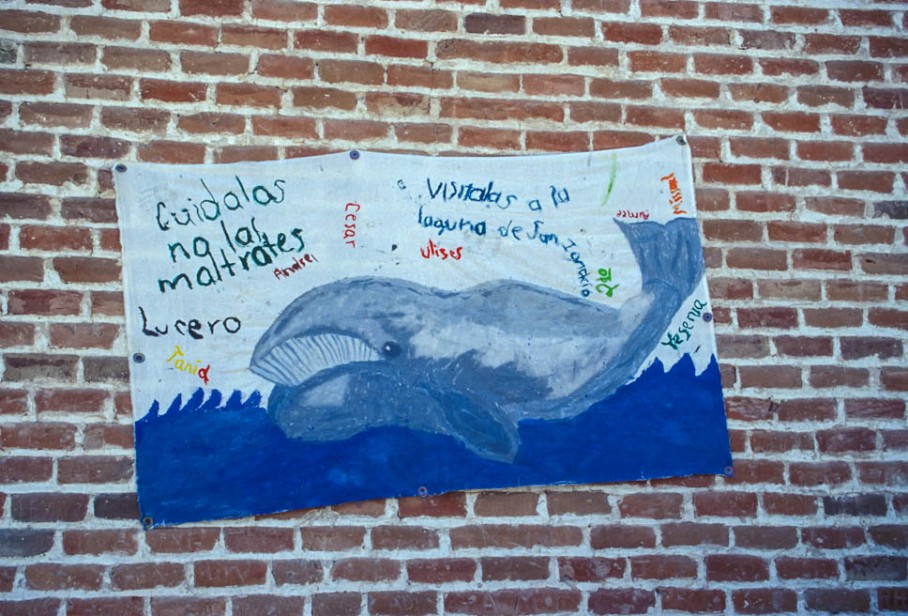 Cuidalas
no las
maltrates
Andrei
Lucero
Tania
Cesar
Visitalas a la
laguna de San
Ignacio
ulises
2do
Yesenia